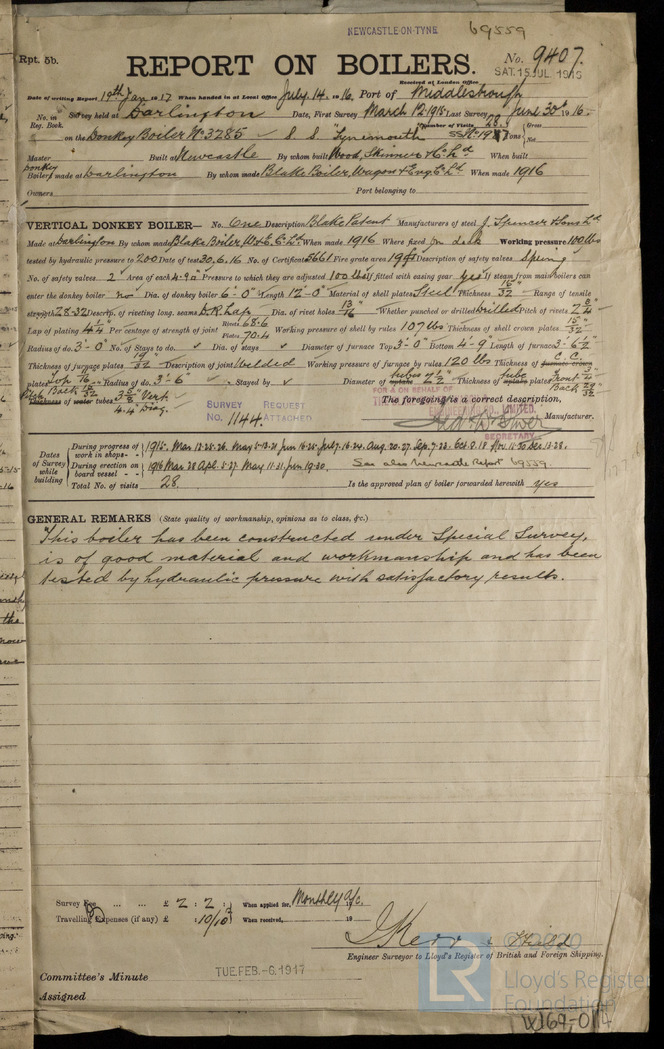 NEWCASTLE-ON-TYNE 69559
Rpt. 5b.
REPORT ON BOILERS. No. 9407.
Received at London Office SAT. 15 JUL 1916
Date of writing Report 19th Jan 1917 When handed in at Local Office July 14 1916 Port of Middlesbrough
No. in Reg. Book. Survey held at Darlington Date, First Survey March 12 1915 Last Survey June 30th 1916
on the Donkey Boiler No 3285 S S Tynemouth Number of Visits 28 Tons Gross Net
Master Built at Newcastle By whom built Wood, Skinner & Co Ld When built
Donkey Boiler made at Darlington By whom made Blake Boiler, Wagon & Eng. Co Ld When made 1916
Owners Port belonging to
VERTICAL DONKEY BOILER— No. One Description Blake Patent Manufacturers of steel J. Spencer & Sons Ld
Made at Darlington By whom made Blake Boiler W. & E. Co Ld When made 1916 Where fixed on deck Working pressure 100 lbs
tested by hydraulic pressure to 200 Date of test 30.6.16 No. of Certificate 5661 Fire grate area Description of safety valves Spring
No. of safety valves 2 Area of each 4.9 Pressure to which they are adjusted 100 lbs If fitted with easing gear yes If steam from main boilers can
enter the donkey boiler no Dia. of donkey boiler 6'-0" Length 12'-0" Material of shell plates Steel Thickness 15/32" Range of tensile
strength 28-32 Descrip. of riveting long. seams D.R. Lap Dia. of rivet holes 13/16" Whether punched or drilled Drilled Pitch of rivets 2 3/4"
Lap of plating 4 1/4" Per centage of strength of joint Rivets 68.6 Plates 70.4 Working pressure of shell by rules 107 lbs Thickness of shell crown plates 15/32"
Radius of do. 3'-0" No. of Stays to do. Dia. of stays Diameter of furnace Top 3'-0" Bottom 4'-9" Length of furnace 3'-6 1/2"
Thickness of furnace plates 19/32" Description of joint Welded Working pressure of furnace by rules 120 lbs Thickness of furnace crown C.C.
plates Top 7/16" Back Radius of do. 3'-6" Stayed by Diameter of uptake tubes 2 1/2" Thickness of uptake tube plates Front 3/4" Back 23/32"
Pitch Thickness of water tubes 3 5/8" Vert. 4.4 Diag.
SURVEY REQUEST
No. 1144 ATTACHED
FOR & ON BEHALF OF
The foregoing is a correct description,
LIMITED.
Manufacturer.
SECRETARY
Dates of Survey while building
During progress of work in shops - - 1915. Mar. 12.25.26. May 5.13.21 Jun 16.25 July 7.16.24 Aug. 20.27 Sep. 7.23. Oct. 8.18 Nov. 11.30 Dec. 13.28.
During erection on board vessel - - 1916 Mar 28 Apl. 5.27 May 11.31 Jun 19.30. See also Newcastle Report 69559
Total No. of visits 28. Is the approved plan of boiler forwarded herewith yes
GENERAL REMARKS (State quality of workmanship, opinions as to class, &c.)
This boiler has been constructed under Special Survey,
is of good material and workmanship and has been
tested by hydraulic pressure with satisfactory results.
Survey Fee ... ... £ 2 : 2 : When applied for, Monthly a/c. 19
Travelling Expenses (if any) £ : 10/10 When received, 19
Engineer Surveyor to Lloyd's Register of British and Foreign Shipping.
Committee's Minute TUE. FEB. -6. 1917
Assigned
LR
©2020
Lloyd's Register
Foundation